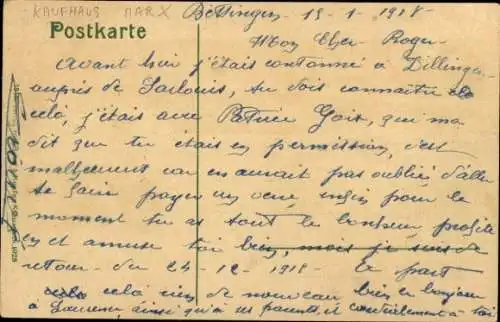 KAUFHAUS MARX
Postkarte
Bettingen 15-1-1918
Mon Cher Roger
Avant hier j'étais cantonné à Dillingen
auprès de Sarlouis, tu dois connaître
cela, j'étais avec Patrice Gois, qui m'a
dit que tu étais en permission, c'est
malheureux car on aurait pas oublié d'aller
te faire payer un verre enfin pour le
moment tu as tout le bonheur, profite
en et amuse toi bien, mais je suis de
retour du 24-12-1918 le part
cela rien de nouveau bien le bonjour
à Laurence, ainsi qu'à tes parents, et cordialement à toi